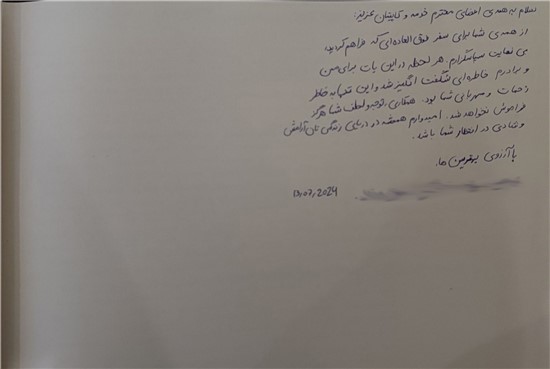 سلام به همه‌ی اعضای محترم خدمه و کاپیتان عزیز:
از همه‌ی شما برای سفر فوق العاده‌ای که فراهم کردید
بی نهایت سپاسگزارم. هر لحظه در این یات برای من
و برادرم خاطره‌ای شگفت انگیز شد و این تنها به خاطر
زحمات و مهربانی شما بود. همکاری، توجه و لطف شما هرگز
فراموش نخواهد شد. امیدوارم همیشه در دریای زندگی تان آرامش
و شادی در انتظار شما باشد.
با آرزوی بهترین ها.
13.07.2024